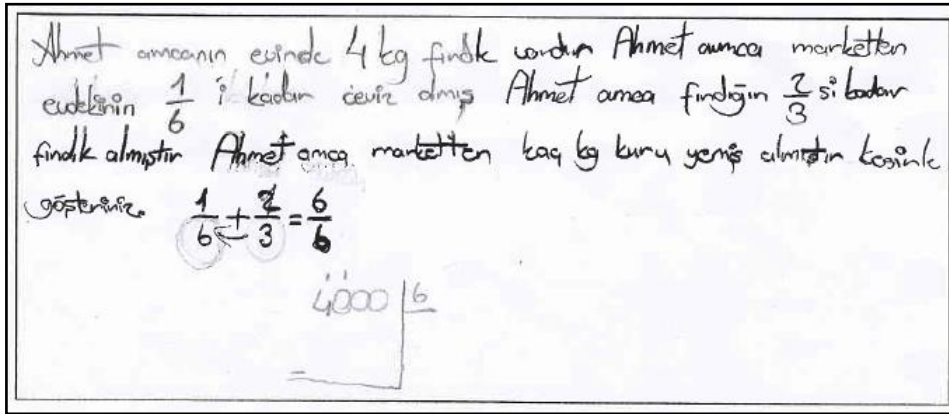 Ahmet amcanın evinde 4 kg fındık vardır Ahmet amca marketten
evdekinin 1/6 i kadar ceviz almış Ahmet amca fındığın 2/3 si kadar
fındık almıştır Ahmet amca marketten kaç kg kuru yemiş almıştır kesirle
gösteriniz. 1/6 + 2/3 = 6/6
4000 | 6